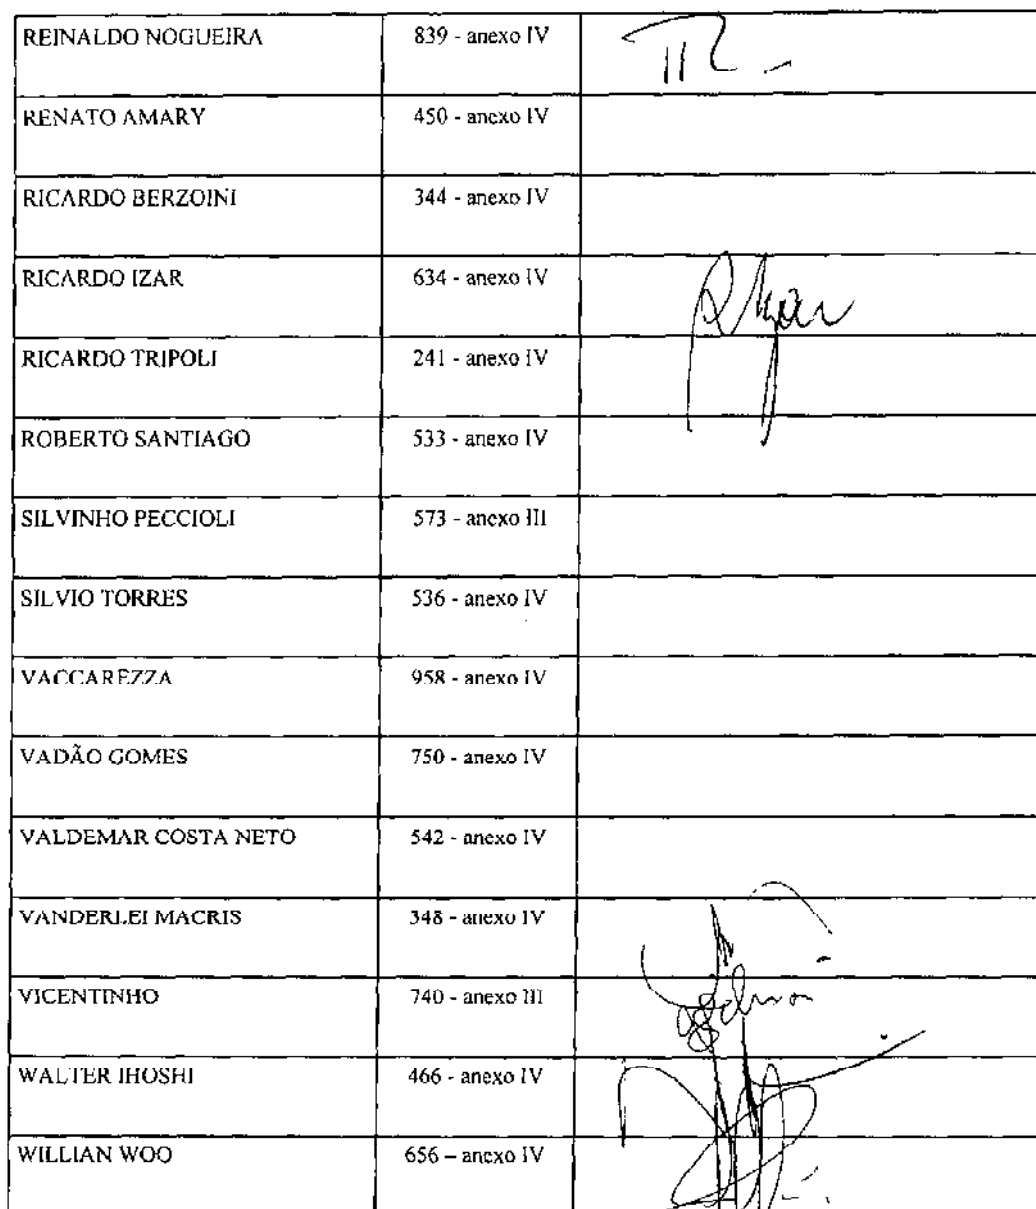 REINALDO NOGUEIRA 839 - anexo IV
RENATO AMARY 450 - anexo IV
RICARDO BERZOINI 344 - anexo IV
RICARDO IZAR 634 - anexo IV
RICARDO TRIPOLI 241 - anexo IV
ROBERTO SANTIAGO 533 - anexo IV
SILVINHO PECCIOLI 573 - anexo III
SILVIO TORRES 536 - anexo IV
VACCAREZZA 958 - anexo IV
VADÃO GOMES 750 - anexo IV
VALDEMAR COSTA NETO 542 - anexo IV
VANDERLEI MACRIS 348 - anexo IV
VICENTINHO 740 - anexo III
WALTER IHOSHI 466 - anexo IV
WILLIAN WOO 656 – anexo IV